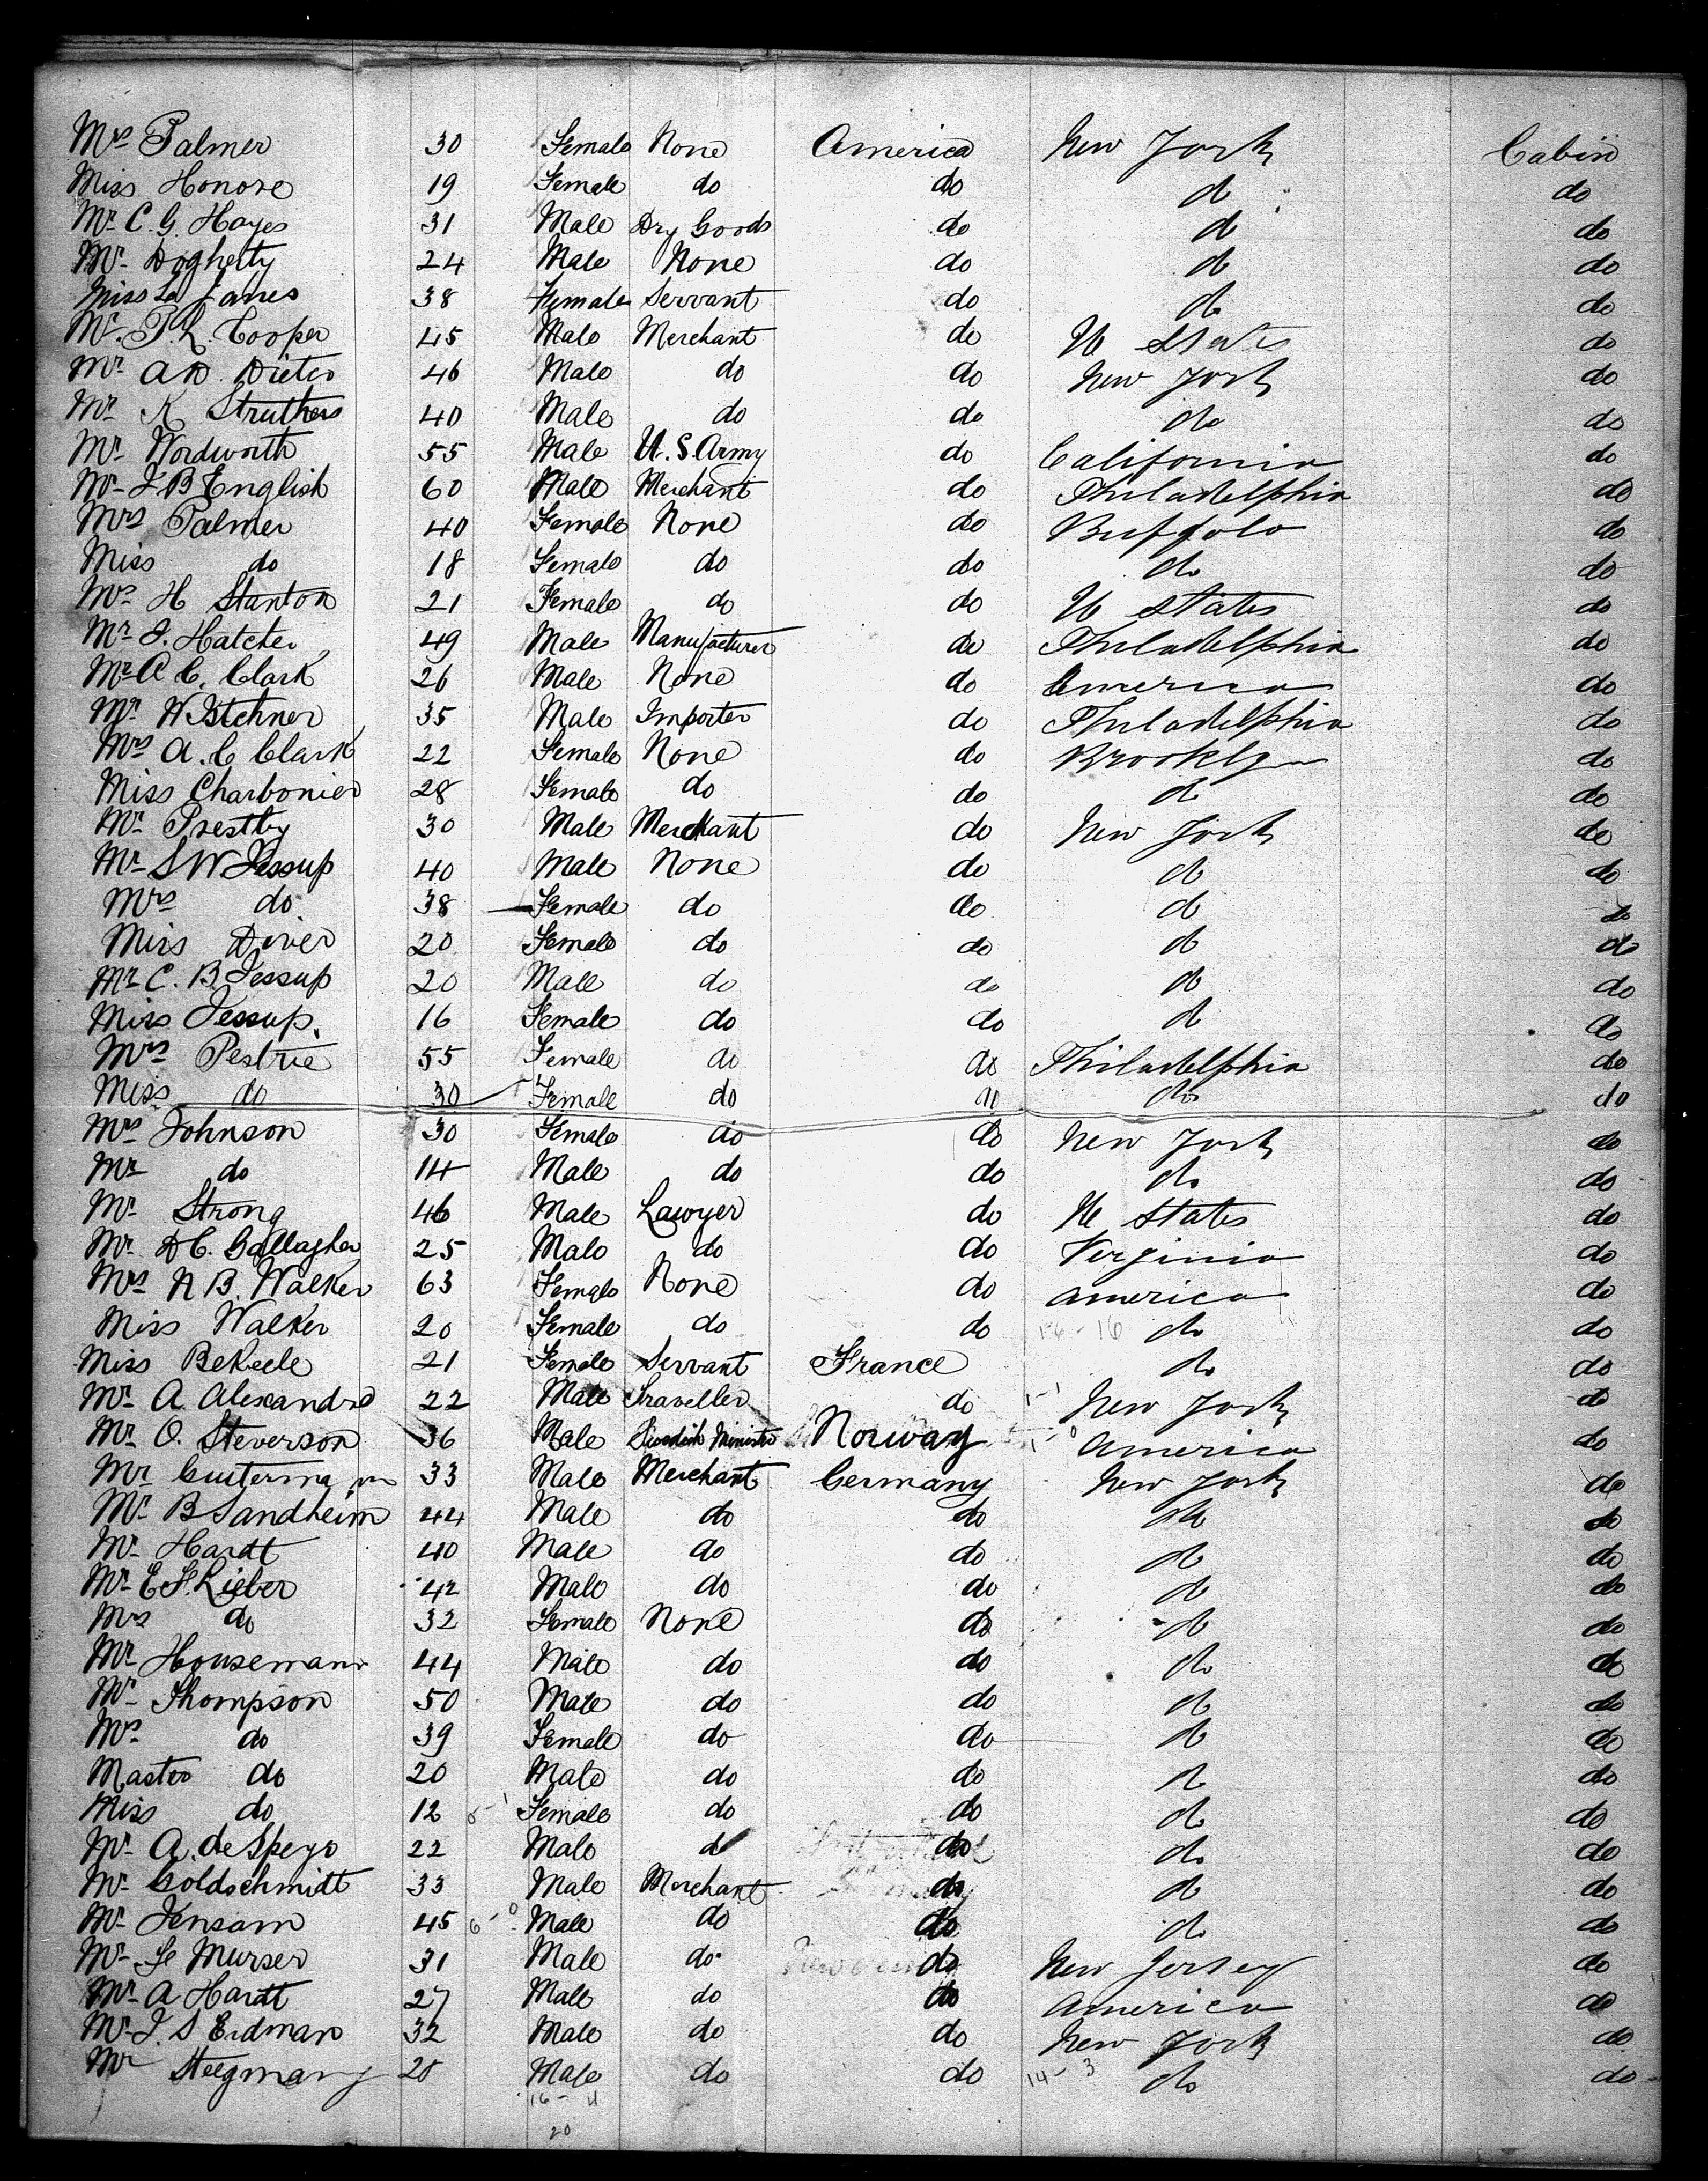 Mrs Palmer 30 Female None America New York Cabin
Miss Honore 19 Female do do do do
Mr C. G. Hayes 31 Male Dry Goods do do do
Mr Doghetty 24 Male None do do do
Miss La Janes 38 Female Servant do do do
Mr. P. L. Cooper 45 Male Merchant do U States do
Mr A D. Dieter 46 Male do do New York do
Mr K Struthers 40 Male do do do do
Mr Wordworth 55 Male U.S. Army do California do
Mr J B English 60 Male Merchant do Philadelphia do
Mrs Palmer 40 Female None do Buffolo do
Miss do 18 Female do do do do
Mrs H Stanton 21 Female do do U States do
Mr J. Hatcher 49 Male Manufacturer do Philadelphia do
Mr A C. Clark 26 Male None do America do
Mr 35 Male Importer do Philadelphia do
Mrs A. C Clark 22 Female None do Brooklyn do
Miss Charbonier 28 Female do do do do
Mr Prestby 30 Male Merchant do New York do
Mr S W Jessup 40 Male None do do do
Mrs do 38 Female do do do do
Miss Diver 20 Female do do do do
Mr C. B. Jessup 20 Male do do do do
Miss Jessup. 16 Female do do do do
Mrs Pestrie 55 Female do do Philadelphia do
Miss do 30 Female do 11 do do
Mrs Johnson 30 Female do do New York do
Mr do 14 Male do do do do
Mr Strong 46 Male Lawyer do U States do
Mr D C. Gallagher 25 Male do do Verginia do
Mrs N B. Walker 63 Female None do America do
Miss Walker 20 Female do do 16 do do
Miss Bekeele 21 Female Servant France do do
Mr A. Alexandre 22 Male Traveller do New York do
Mr O. Steverson 36 Male Swedish Minister Norway America do
Mr Guiterman 33 Male Merchant Germany New York do
Mr B Sandheim 44 Male do do do do
Mr Hardt 40 Male do do do do
Mr E F. Lieber 42 Male do do do do
Mrs do 32 Female None do do do
Mr Housemann 44 Male do do do do
Mr Thompson 50 Male do do do do
Mrs do 39 Female do do do do
Master do 20 Male do do do do
Miss do 12 Female do do do do
Mr A. de Speyr 22 Male do do do do
Mr Goldschmidt 33 Male Merchant do do do
Mr Jensam 45 6-0 Male do do do do
Mr Le Murser 31 Male do do New Jersey do
Mr A Hardt 27 Male do do America do
Mr J. S Erdman 32 Male do do New York do
Mr Steegman 28 Male do do 14-3 do do
16-4
20